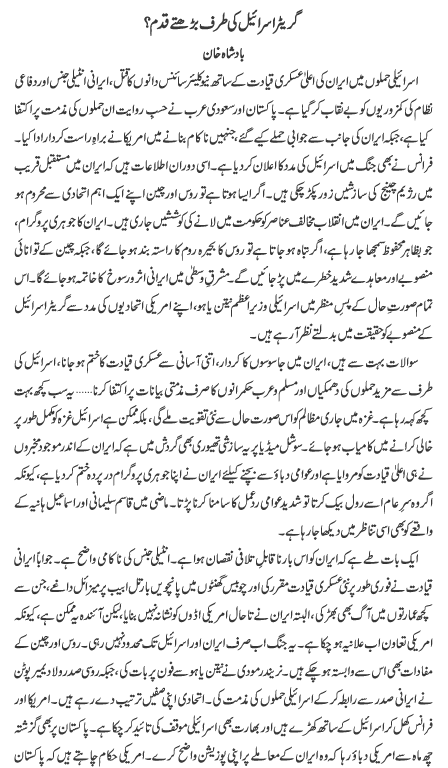 گریٹر اسرائیل کی طرف بڑھتے قدم؟
بادشاہ خان
اسرائیلی حملوں میں ایران کی اعلیٰ عسکری قیادت کے ساتھ نیوکلیئر سائنس دانوں کا قتل، ایرانی انٹیلی جنس اور دفاعی
نظام کی کمزوریوں کو بے نقاب کر گیا ہے۔ پاکستان اور سعودی عرب نے حسب روایت ان حملوں کی مذمت پر اکتفا
کیا ہے، جبکہ ایران کی جانب سے جوابی حملے کیے گئے، جنہیں ناکام بنانے میں امریکا نے براہِ راست کردار ادا کیا۔
فرانس نے بھی جنگ میں اسرائیل کی مدد کا اعلان کردیا ہے۔ اسی دوران اطلاعات ہیں کہ ایران میں مستقبل قریب
میں رژیم چینج کی سازشیں زور پکڑ چکی ہیں۔ اگر ایسا ہوتا ہے تو روس اور چین اپنے ایک اہم اتحادی سے محروم ہو
جائیں گے۔ ایران میں انقلاب مخالف عناصر کو حکومت میں لانے کی کوششیں جاری ہیں۔ ایران کا جوہری پروگرام،
جو بظاہر محفوظ سمجھا جا رہا ہے، اگر تباہ ہو جاتا ہے تو روس کا بحیرہ روم کا راستہ بند ہو جائے گا، جبکہ چین کے توانائی
منصوبے اور معاہدے شدید خطرے میں پڑ جائیں گے۔ مشرق وسطیٰ میں ایرانی اثر و رسوخ کا خاتمہ ہو جائے گا۔ اس
تمام صورتِ حال کے پس منظر میں اسرائیلی وزیر اعظم نیتن یاہو، اپنے امریکی اتحادیوں کی مدد سے گریٹر اسرائیل
کے منصوبے کو حقیقت میں بدلتے نظر آ رہے ہیں۔
سوالات بہت سے ہیں، ایران میں جاسوسوں کا کردار، اتنی آسانی سے عسکری قیادت کا ختم ہو جانا، اسرائیل کی
طرف سے مزید حملوں کی دھمکیاں اور مسلم و عرب حکمرانوں کا صرف مذمتی بیانات پر اکتفا کرنا...... یہ سب کچھ بہت
کچھ کہہ رہا ہے۔ غزہ میں جاری مظالم کو اس صورت حال سے نئی تقویت ملے گی، بلکہ ممکن ہے اسرائیل غزہ کو مکمل طور پر
خالی کرانے میں کامیاب ہو جائے۔ سوشل میڈیا پر یہ سازشی تھیوری بھی گردش میں ہے کہ ایران کے اندر موجود مخبروں
نے ہی اعلیٰ قیادت کو مروایا ہے اور عوامی دباؤ سے بچنے کیلئے ایران نے اپنا جوہری پروگرام در پردہ ختم کر دیا ہے، کیونکہ
اگر وہ سرِ عام اسے رول بیک کرتا تو شدید عوامی ردعمل کا سامنا کرنا پڑتا۔ ماضی میں قاسم سلیمانی اور اسماعیل ہانیہ کے
واقعے کو بھی اسی تناظر میں دیکھا جا رہا ہے۔
ایک بات طے ہے کہ ایران کو اس بار ناقابلِ تلافی نقصان ہوا ہے۔ انٹیلی جنس کی ناکامی واضح ہے۔ جواباً ایرانی
قیادت نے فوری طور پر نئی عسکری قیادت مقرر کی اور چوبیس گھنٹوں میں پانچویں بار تل ابیب پر میزائل داغے، جن سے
کچھ عمارتوں میں آگ بھی بھڑکی، البتہ ایران نے تاحال امریکی اڈوں کو نشانہ نہیں بنایا، لیکن آئندہ یہ ممکن ہے، کیونکہ
امریکی تعاون اب علانیہ ہو چکا ہے۔ یہ جنگ اب صرف ایران اور اسرائیل تک محدود نہیں رہی۔ روس اور چین کے
مفادات بھی اس سے وابستہ ہو چکے ہیں۔ نریندر مودی نے نیتن یاہو سے فون پر بات کی، جبکہ روسی صدر ولادیمیر پوٹن
نے ایرانی صدر سے رابطہ کر کے اسرائیلی حملوں کی مذمت کی۔ اتحادی اپنی صفیں ترتیب دے رہے ہیں۔ امریکا اور
فرانس کھل کر اسرائیل کے ساتھ کھڑے ہیں اور بھارت بھی اسرائیلی موقف کی تائید کر چکا ہے۔ پاکستان پر بھی گزشتہ
چھ ماہ سے امریکی دباؤ رہا کہ وہ ایران کے معاملے پر اپنی پوزیشن واضح کرے۔ امریکی حکام چاہتے ہیں کہ پاکستان